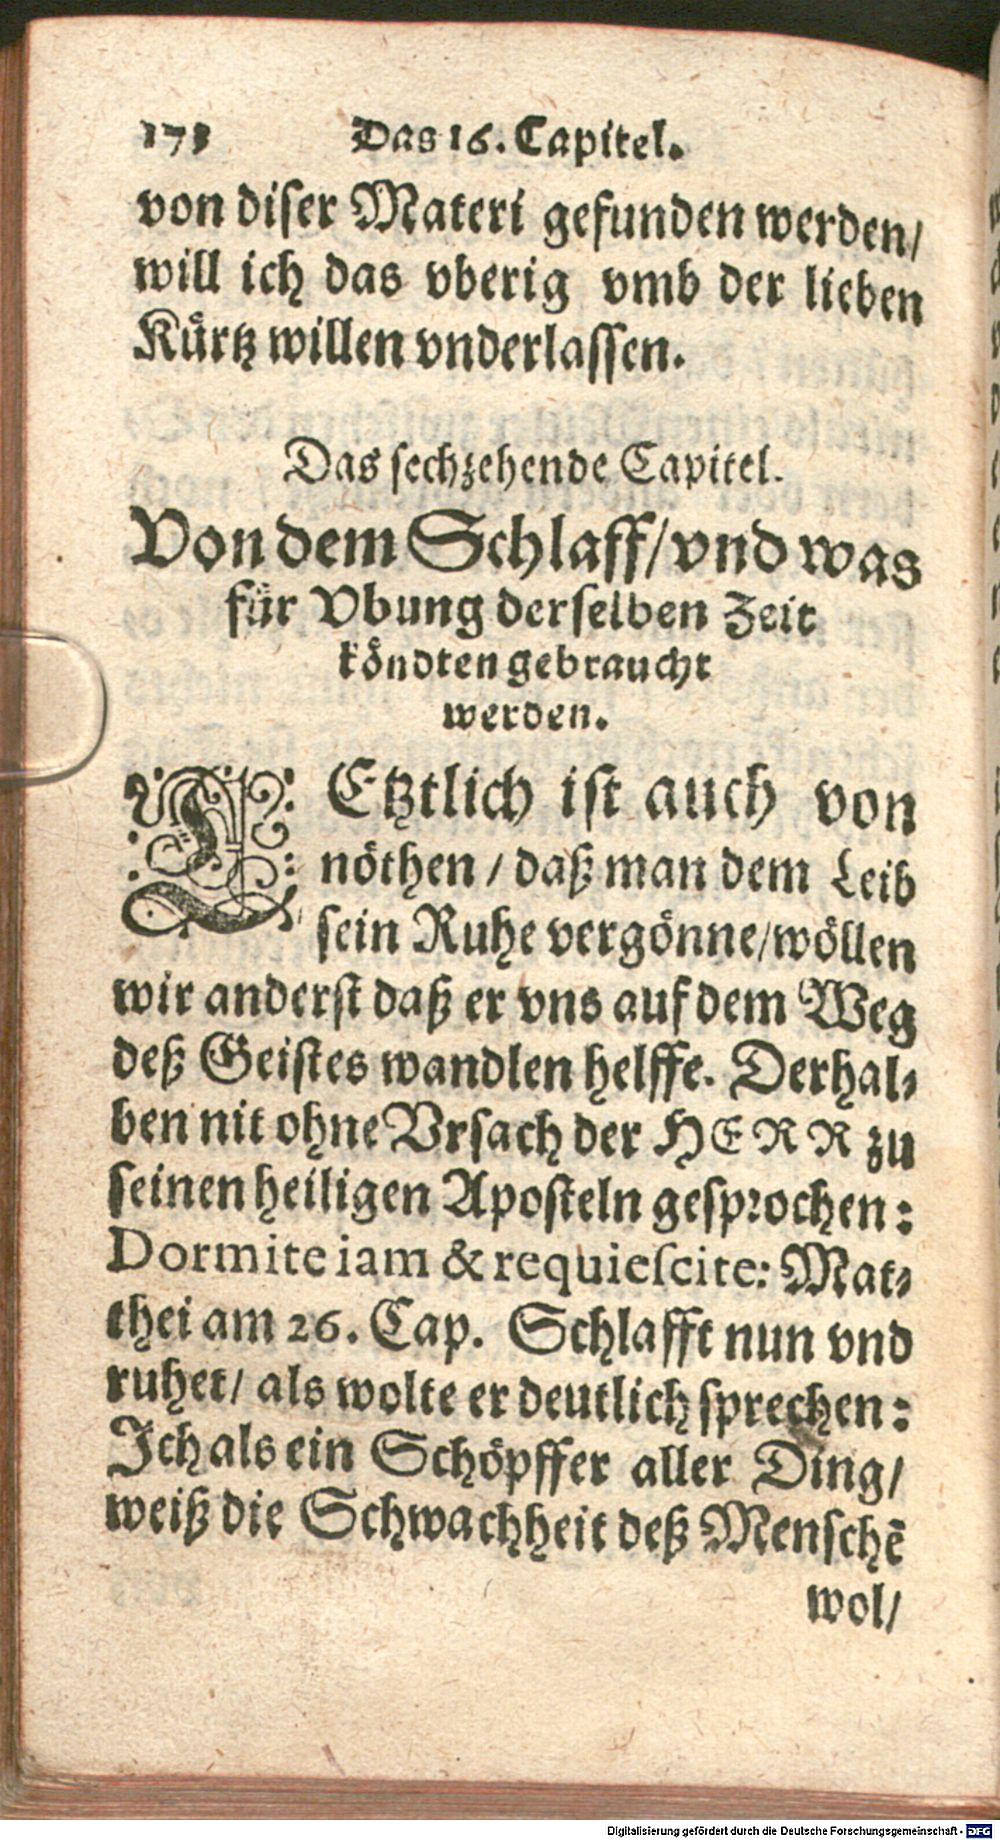 173 Das 16. Capitel.
von diser Materi gefunden werden/
will ich das vberig vmb der lieben
Kürtz willen vnderlassen.
Das sechzehende Capitel.
Von dem Schlaff/ vnd was
für Vbung derselben Zeit
köndten gebraucht
werden.
LEtztlich ist auch von
nöthen / daß man dem Leib
sein Ruhe vergönne/ wöllen
wir anderst daß er vns auf dem Weg
deß Geistes wandlen helffe. Derhal-
ben nit ohne Vrsach der HERR zu
seinen heiligen Aposteln gesprochen:
Dormite iam & requiescite: Mat-
thei am 26. Cap. Schlafft nun vnd
ruhet/ als wolte er deutlich sprechen:
Ich als ein Schöpffer aller Ding/
weiß die Schwachheit deß Menschē
wol/
Digitalisierung gefördert durch die Deutsche Forschungsgemeinschaft - DFG